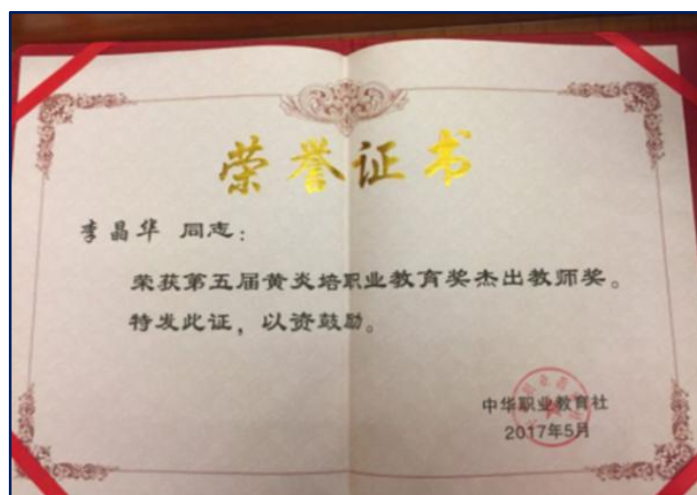 荣誉证书
李晶华 同志：
荣获第五届黄炎培职业教育奖杰出教师奖。
特发此证，以资鼓励。
中华职业教育社
2017年5月